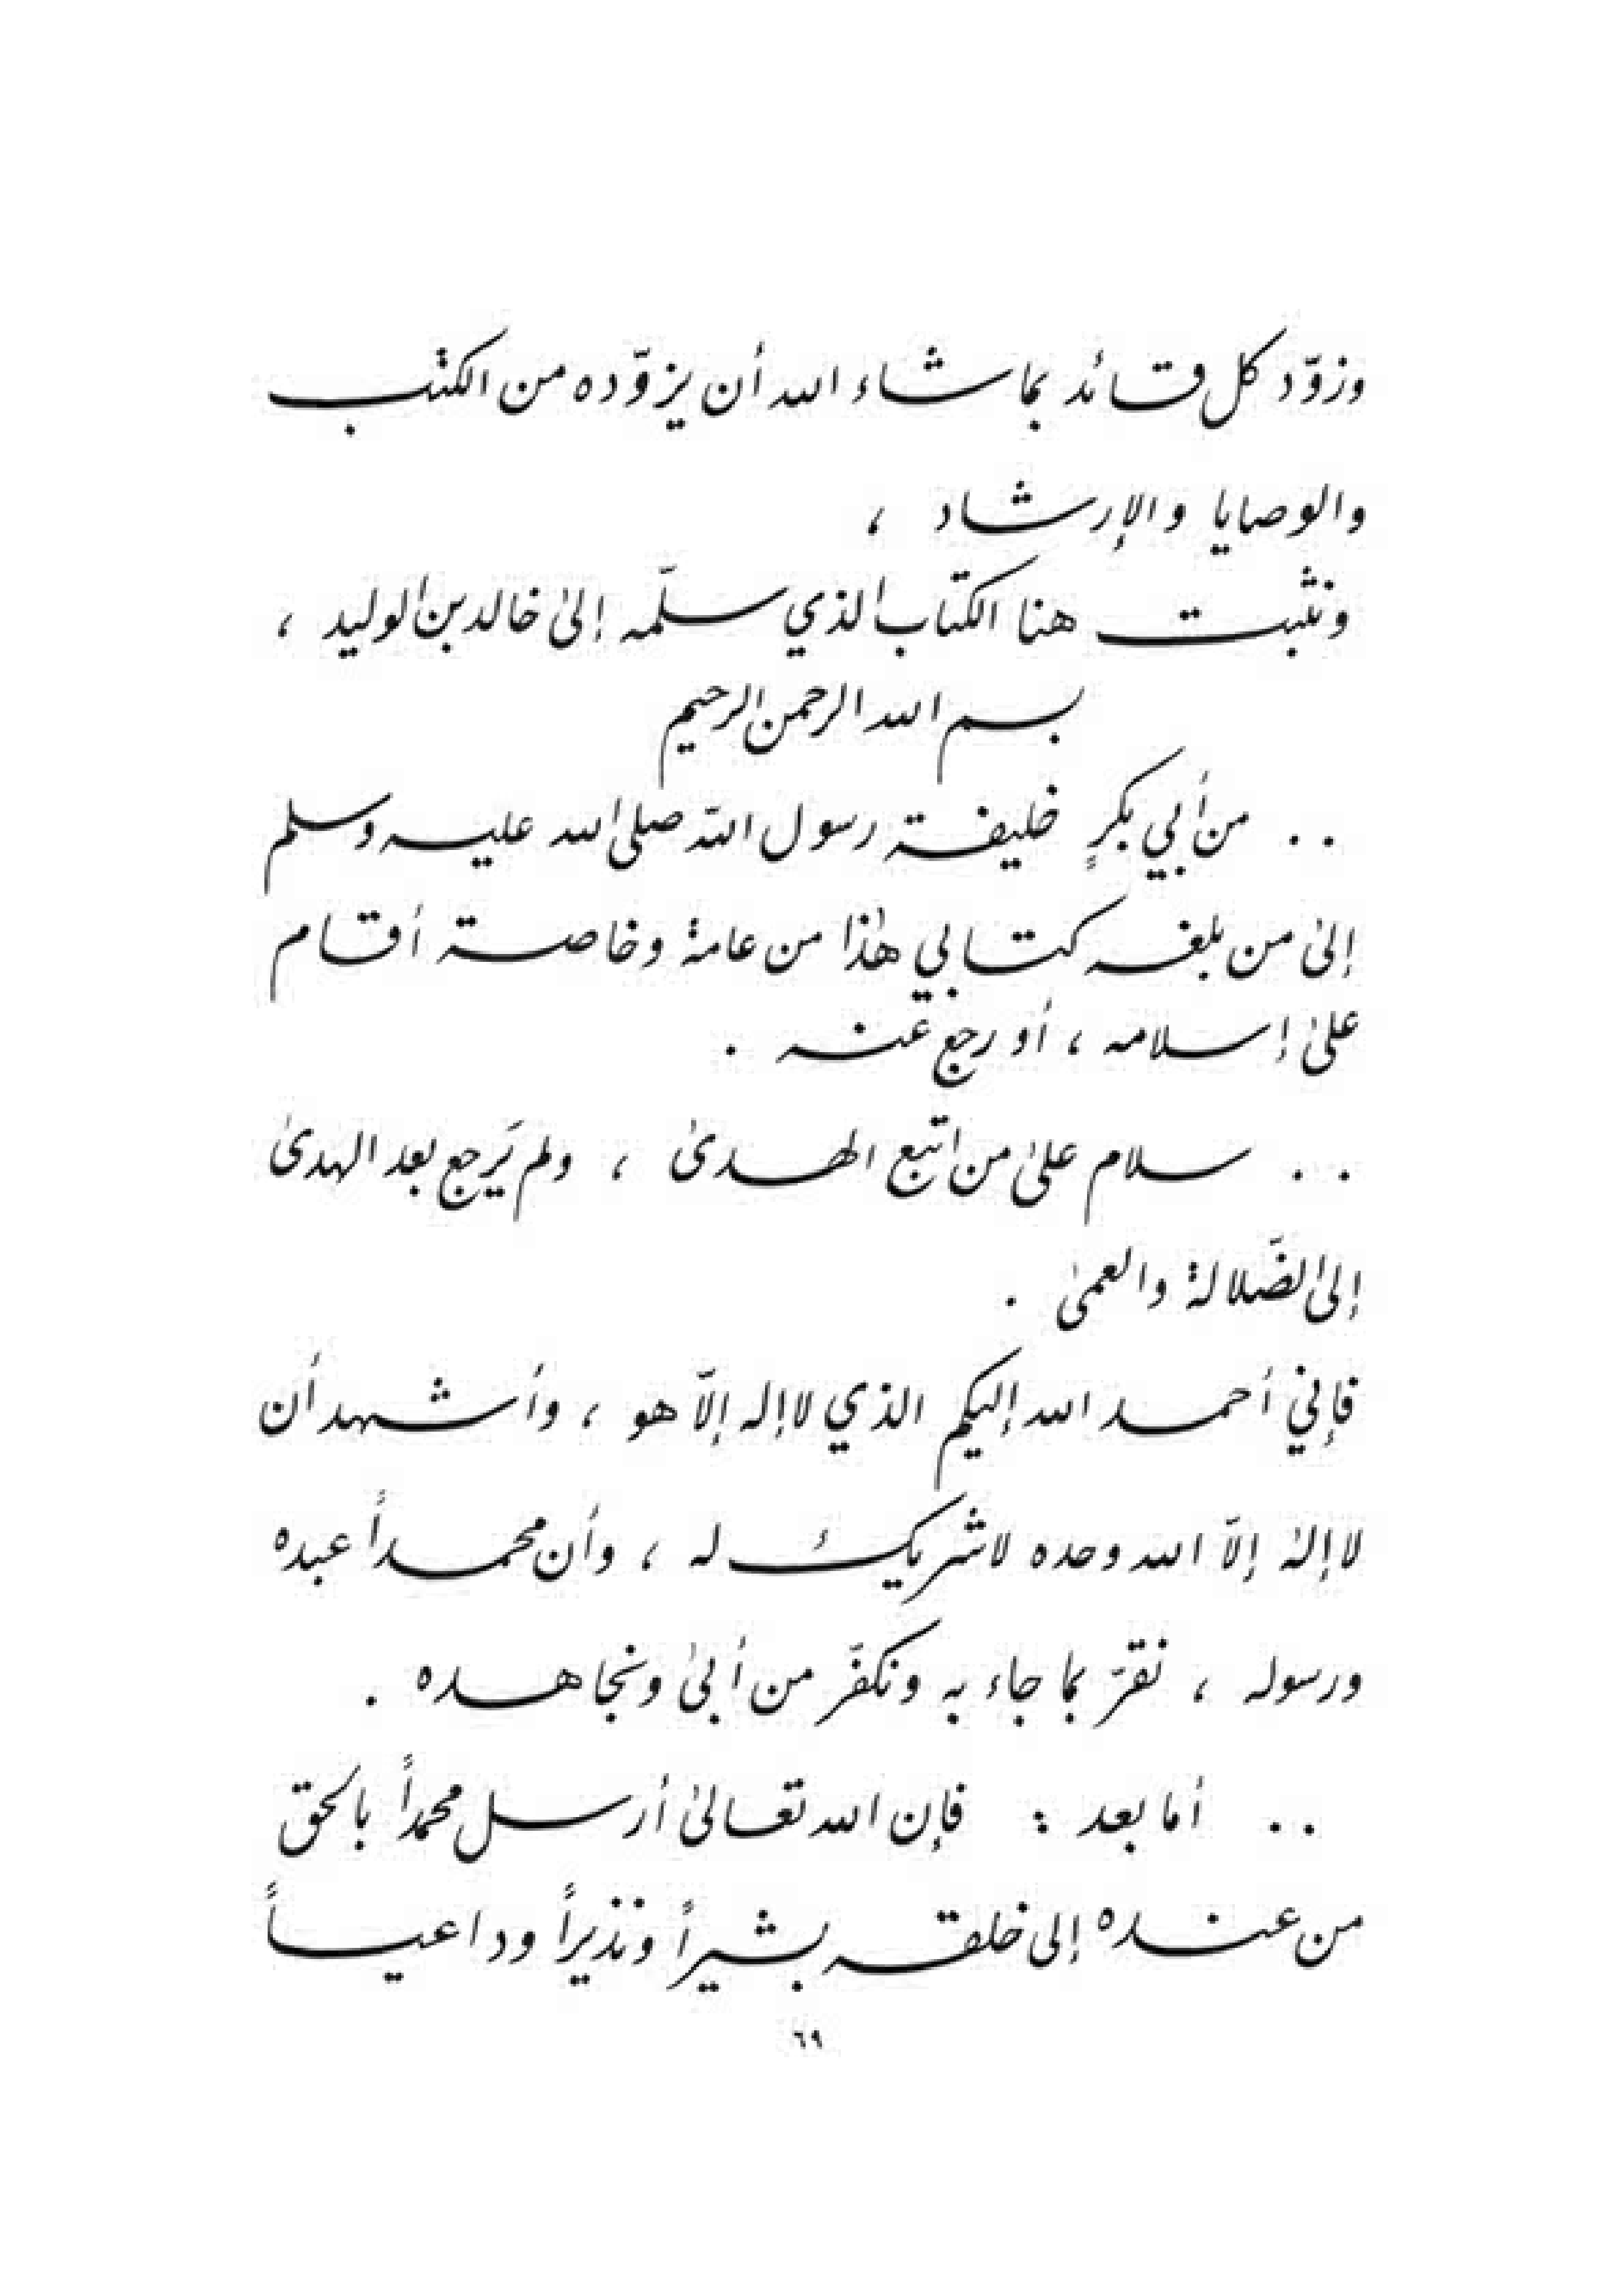 وزوّد كل قائد بما شاء الله أن يزوّده من الكتب
والوصايا والإرشاد ،
ونثبت هنا الكتاب الذي سلّمه إلى خالد بن الوليد ،
بسم الله الرحمن الرحيم
. . من أبي بكرٍ خليفة رسول الله صلى الله عليه وسلم
إلى من بلغه كتابي هذا من عامة وخاصة أقام
على إسلامه ، أو رجع عنه .
. . سلام على من اتبع الهدى ، ولم يَرجع بعد الهدى
إلى الضّلالة والعمى .
فإني أحمد الله إليكم الذي لا إله إلاّ هو ، وأشهد أن
لا إله إلاّ الله وحده لا شريك له ، وأن محمداً عبده
ورسوله ، نقرّ بما جاء به ونكفّر من أبى ونجاهده .
. . أما بعد : فإن الله تعالى أرسل محمداً بالحق
من عنده إلى خلقه بشيراً ونذيراً وداعياً
٦٩